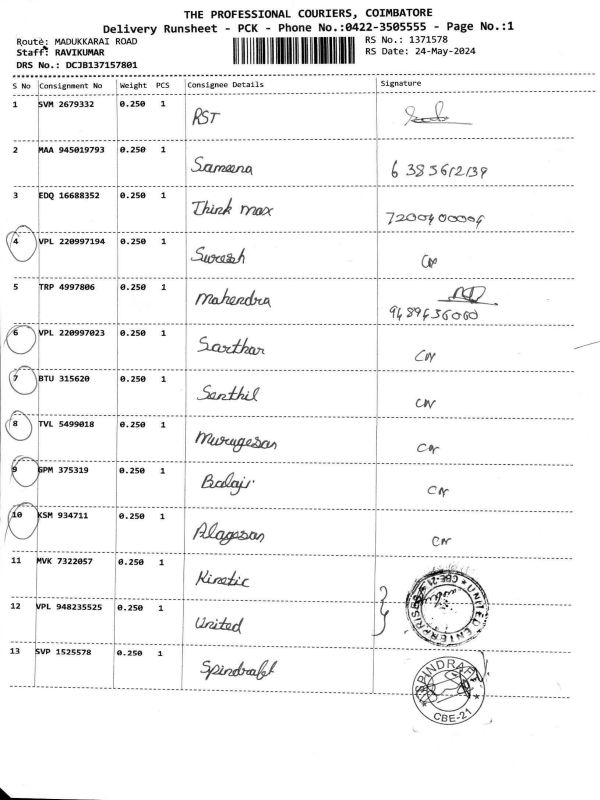 THE PROFESSIONAL COURIERS, COIMBATORE
Delivery Runsheet - PCK - Phone No.:0422-3505555 - Page No.:1
Route: MADUKKARAI ROAD RS No.: 1371578
Staff: RAVIKUMAR RS Date: 24-May-2024
DRS No.: DCJB137157801
S No Consignment No Weight PCS Consignee Details Signature
1 SVM 2679332 0.250 1 RST
2 MAA 945019793 0.250 1 Sameena 6385612139
3 EDQ 16688352 0.250 1 Think max 7200400004
4 VPL 220997194 0.250 1 Suresh CN
5 TRP 4997806 0.250 1 Mahendra 9489456060
6 VPL 220997023 0.250 1 Sarthar CN
7 BTU 315620 0.250 1 Senthil CN
8 TVL 5499018 0.250 1 Murugesan CN
9 GPM 375319 0.250 1 Balaji CN
10 KSM 934711 0.250 1 Alagesan CN
11 MVK 7322057 0.250 1 Kinetic
12 VPL 948235525 0.250 1 United
UNITED ENTERPRISES CBE-21
13 SVP 1525578 0.250 1 Spindraft
SPINDRAFT
CBE-21